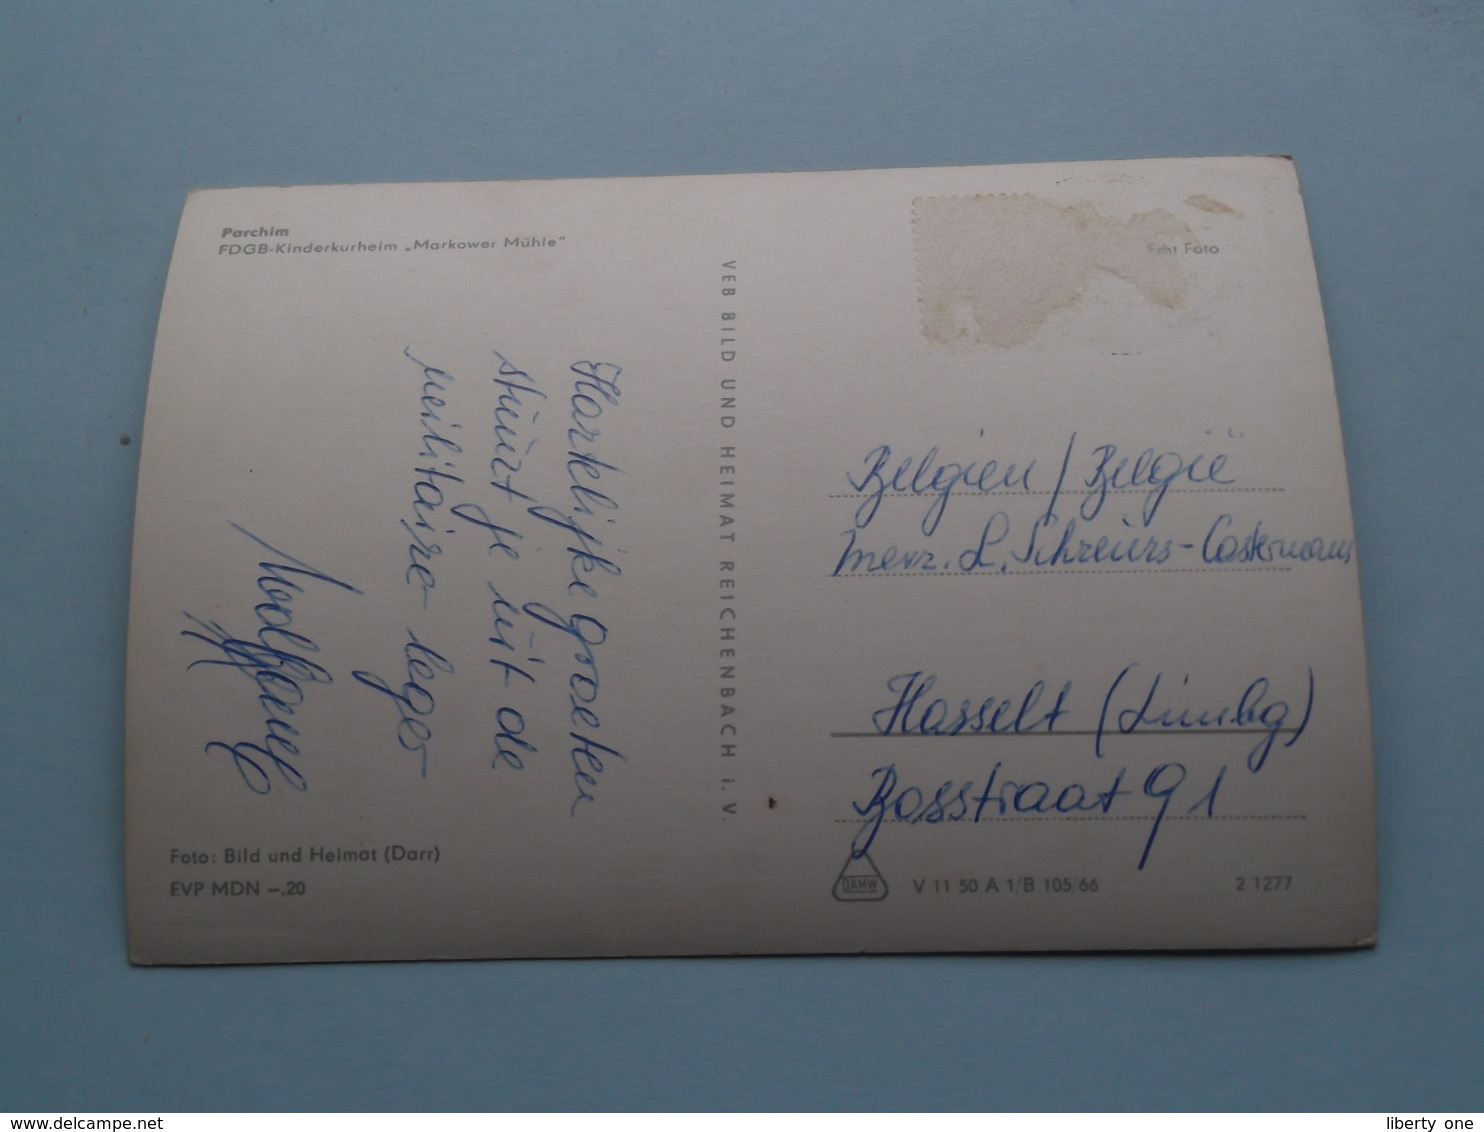 Parchim
FDGB-Kinderkurheim „Markower Mühle"
Hartelijke groeten
stuurt je uit de
militaire leger
Wolfgang
Foto: Bild und Heimat (Darr)
EVP MDN –.20
VEB BILD UND HEIMAT REICHENBACH i. V.
Echt Foto
Belgien / België
mevr. L. Schreurs-Castermans
Hasselt (Limbg)
Bosstraat 91
DAMW
V 11 50 A 1/B 105/66
2 1277
liberty one